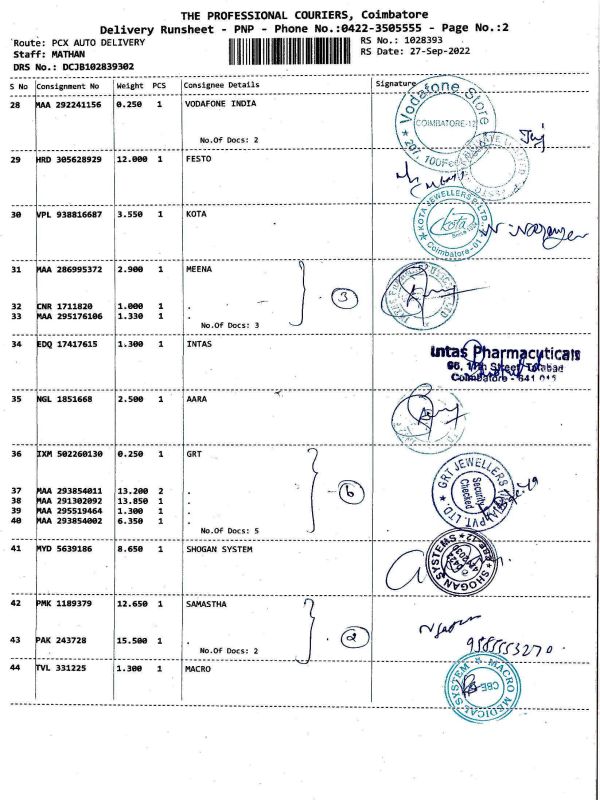 THE PROFESSIONAL COURIERS, Coimbatore
Delivery Runsheet - PNP - Phone No.:0422-3505555 - Page No.:2
Route: PCX AUTO DELIVERY RS No.: 1028393
Staff: MATHAN RS Date: 27-Sep-2022
DRS No.: DCJB102839302
S No Consignment No Weight PCS Consignee Details Signature
28 MAA 292241156 0.250 1 VODAFONE INDIA
Vodafone Store
COIMBATORE-12
No.Of Docs: 2
29 HRD 305628929 12.000 1 FESTO
30 VPL 938816687 3.550 1 KOTA
KOTA JEWELLERS P. LTD.
Kota
Coimbatore-01
31 MAA 286995372 2.900 1 MEENA
3
32 CNR 1711820 1.000 1 .
33 MAA 295176106 1.330 1 .
No.Of Docs: 3
34 EDQ 17417615 1.300 1 INTAS
Intas Pharmacuticals
Coimbatore - 641
35 NGL 1851668 2.500 1 AARA
36 IXM 502260130 0.250 1 GRT
GRT JEWELLERS
Security
Checked
37 MAA 293854011 13.200 2 .
38 MAA 291302092 13.850 1 .
39 MAA 295519464 1.300 1 .
40 MAA 293854002 6.350 1 .
No.Of Docs: 5
41 MYD 5639186 8.650 1 SHOGAN SYSTEM
SHOGAN SYSTEMS
42 PMK 1189379 12.650 1 SAMASTHA
2
43 PAK 243728 15.500 1 .
9585553270
No.Of Docs: 2
44 TVL 331225 1.300 1 MACRO
MACRO MEDICAL SYSTEM
CBE